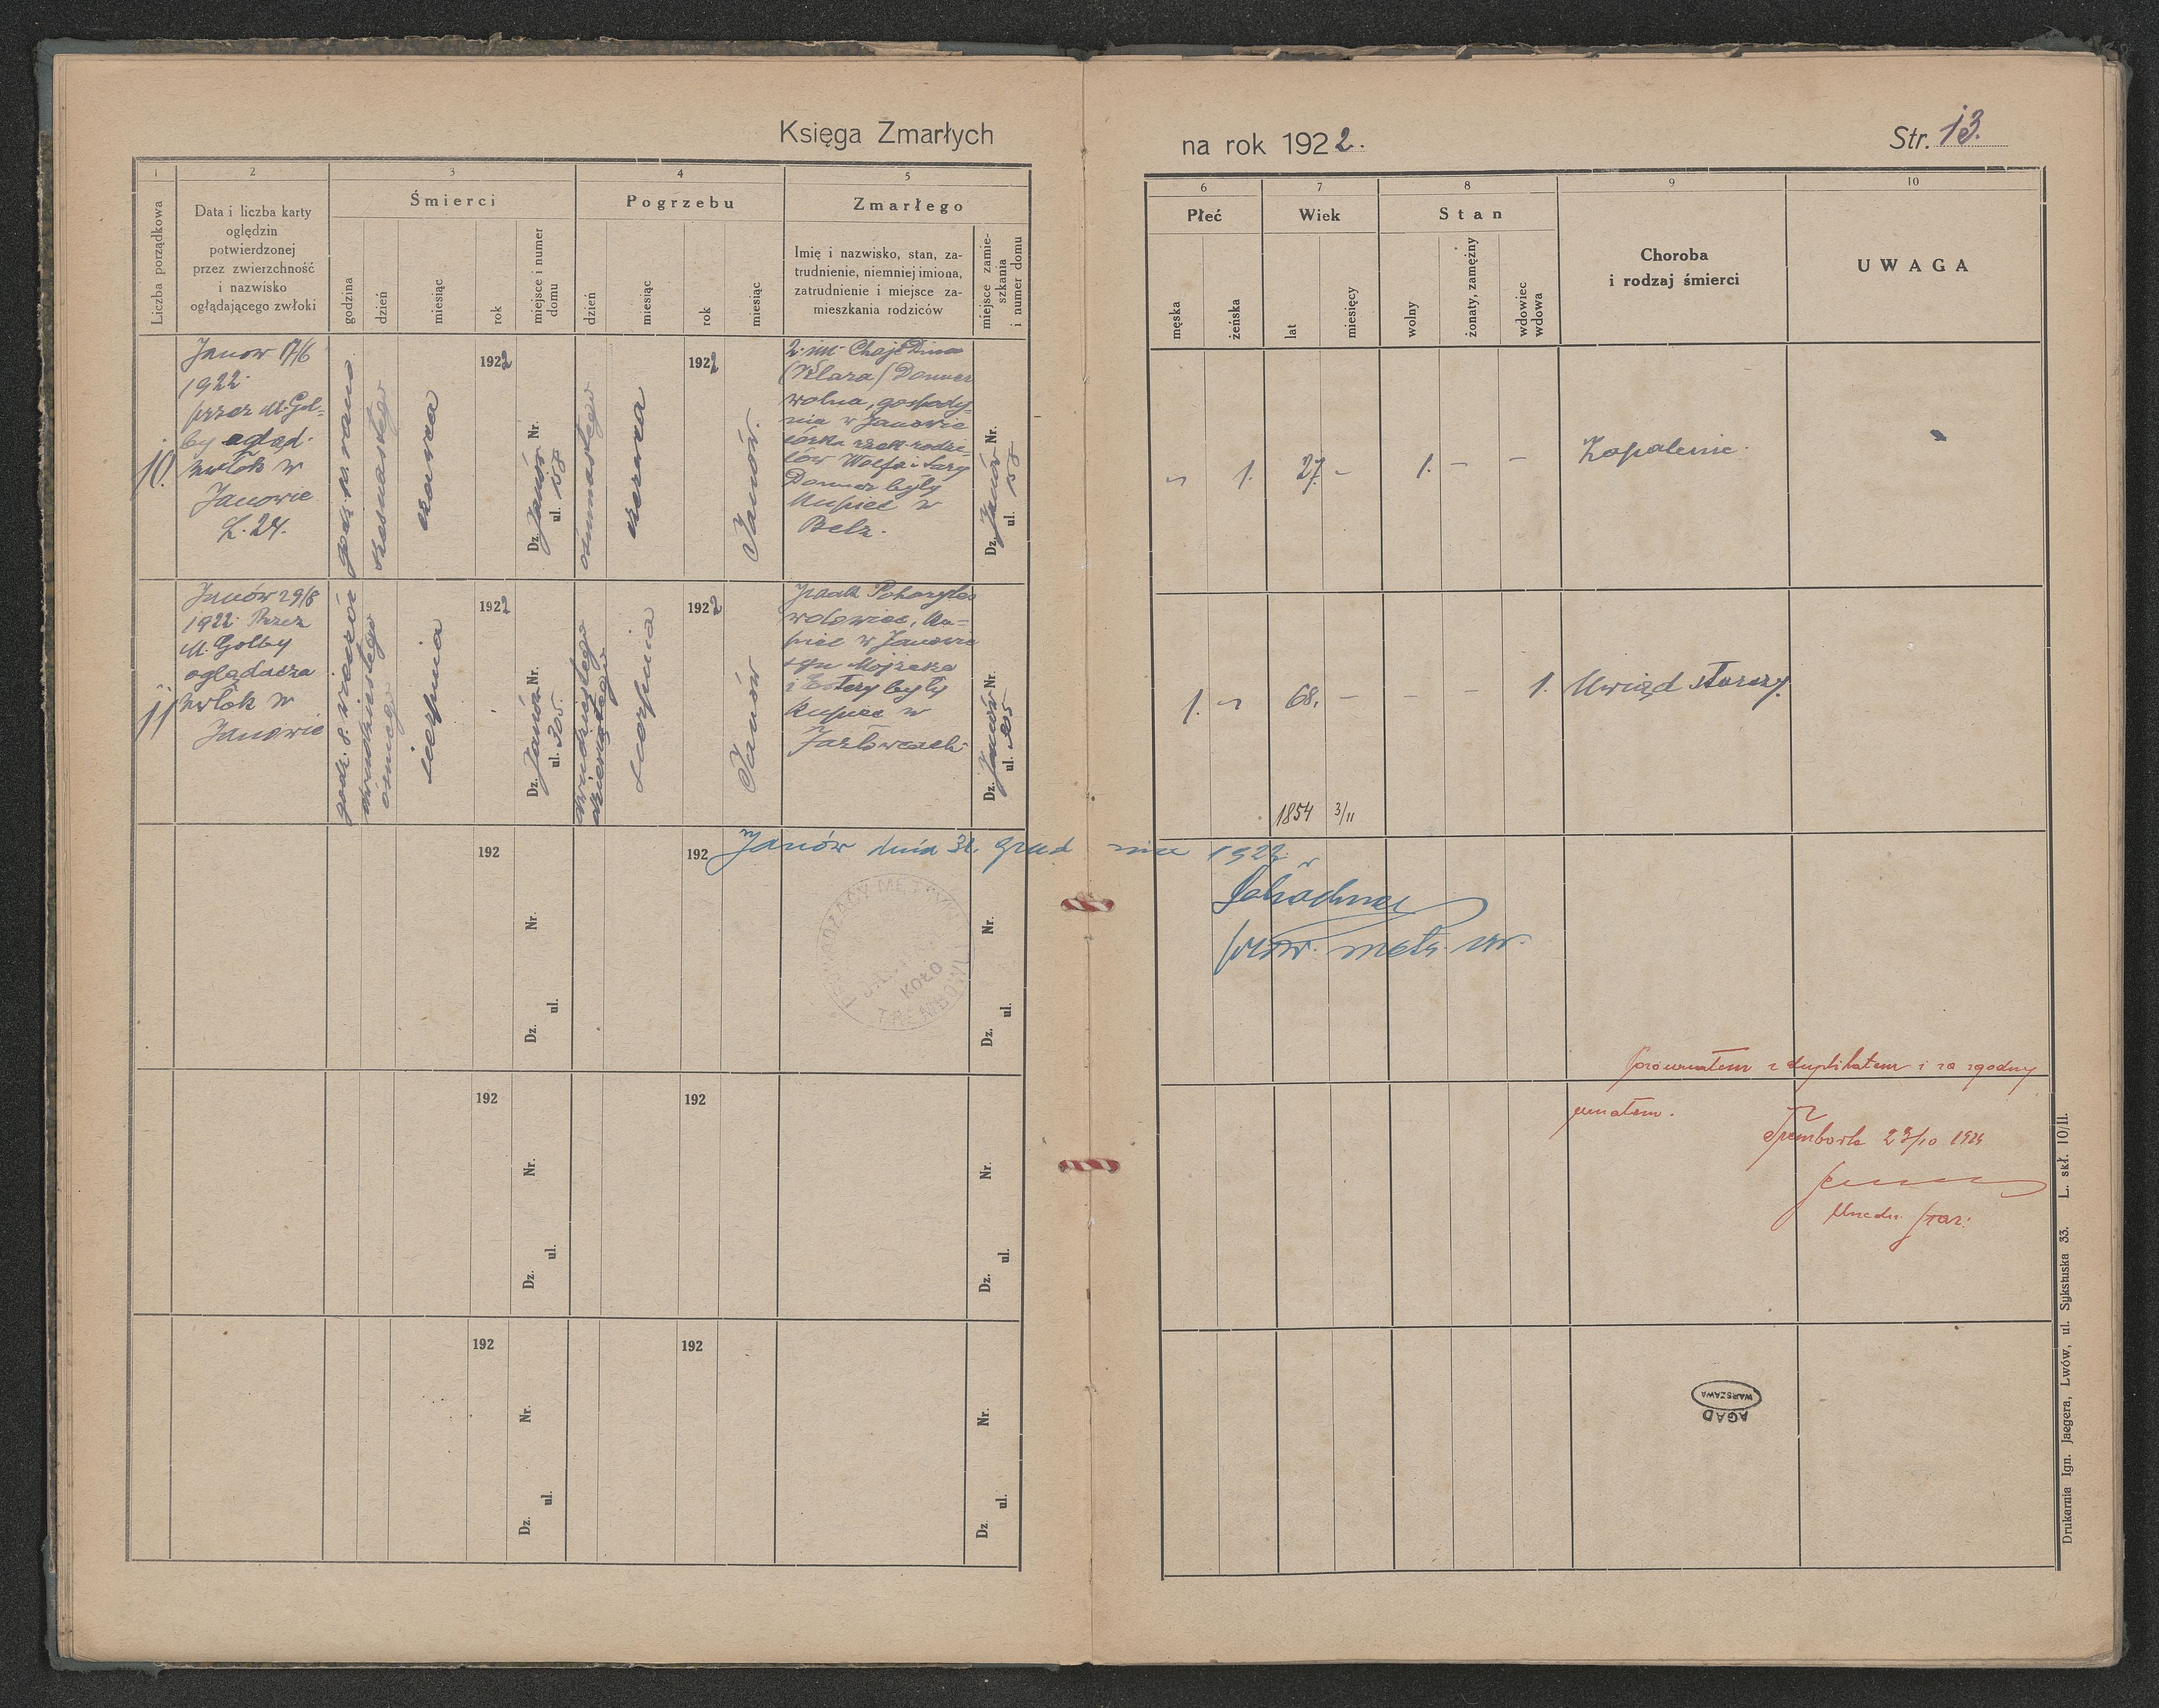 Księga Zmarłych
na rok 1922.
Str. 13.
1
2
3
4
5
Liczba porządkowa
Data i liczba karty
oględzin
potwierdzonej
przez zwierzchność
i nazwisko
oglądającego zwłoki
Śmierci
godzina
dzień
miesiąc
rok
miejsce i numer
domu
Pogrzebu
dzień
miesiąc
rok
miesiąc
Zmarłego
Imię i nazwisko, stan, za-
trudnienie, niemniej imiona,
zatrudnienie i miejsce za-
mieszkania rodziców
miejsce zamie-
szkania
i numer domu
6
7
8
9
10
Płeć
męska
żeńska
Wiek
lat
miesięcy
Stan
wolny
żonaty, zamężny
wdowiec
wdowa
Choroba
i rodzaj śmierci
UWAGA
10.
Janow 17/6
1922
przez M. Gol=
by ogląd.
zwłok w
Janowie
L. 24.
rano
szesnastego
czerwca
1922
Dz. Janów Nr.
ul. 158
osiemnastego
czerwca
1922
Janów.
2. im. Chaje Dina
(Klara) Donner
wolna, gospody=
nia w Janowie
córka rodzi-
ców Wolfa i Sary
Donner były
kupiec w
Belz.
Dz. Janów Nr.
ul. 158
1.
27.
1. - -
Zapalenie.
11
Janów 29/8
1922 Przez
M. Golby
oglądacza
zwłok w
Janowie
godz. 8. wieczór
dwudziestego
ósmego
sierpnia
1922
Dz. Janów Nr.
ul. 305.
dwudziestego
dziewiątego
sierpnia
1922
Janów
Izaak Pohoryles
wdowiec, ku=
piec w Janowie
syn Mojżesza
i Estery były
kupiec w
Jazłowcach
Dz. Janów Nr.
ul. 305
1.
68. - - - 1.
Uwiąd starczy.
1854 3/11
192
Dz. Nr.
ul.
192
Dz. Nr.
ul.
Janów dnia 31. grudnia 1922 r
prow. metr. izr.
PROWADZĄCY METRYKI
KOŁO
TREMBOWLI
Porównałem z duplikatem i za zgodny
uznałem.
192
Dz. Nr.
ul.
192
Dz. Nr.
ul.
Trembowla 23/10 1924
192
Dz. Nr.
ul.
192
Dz. Nr.
ul.
AGAD
WARSZAWA
Drukarnia Ign. Jaegera, Lwów, ul. Sykstuska 33. L. skł. 10/II.